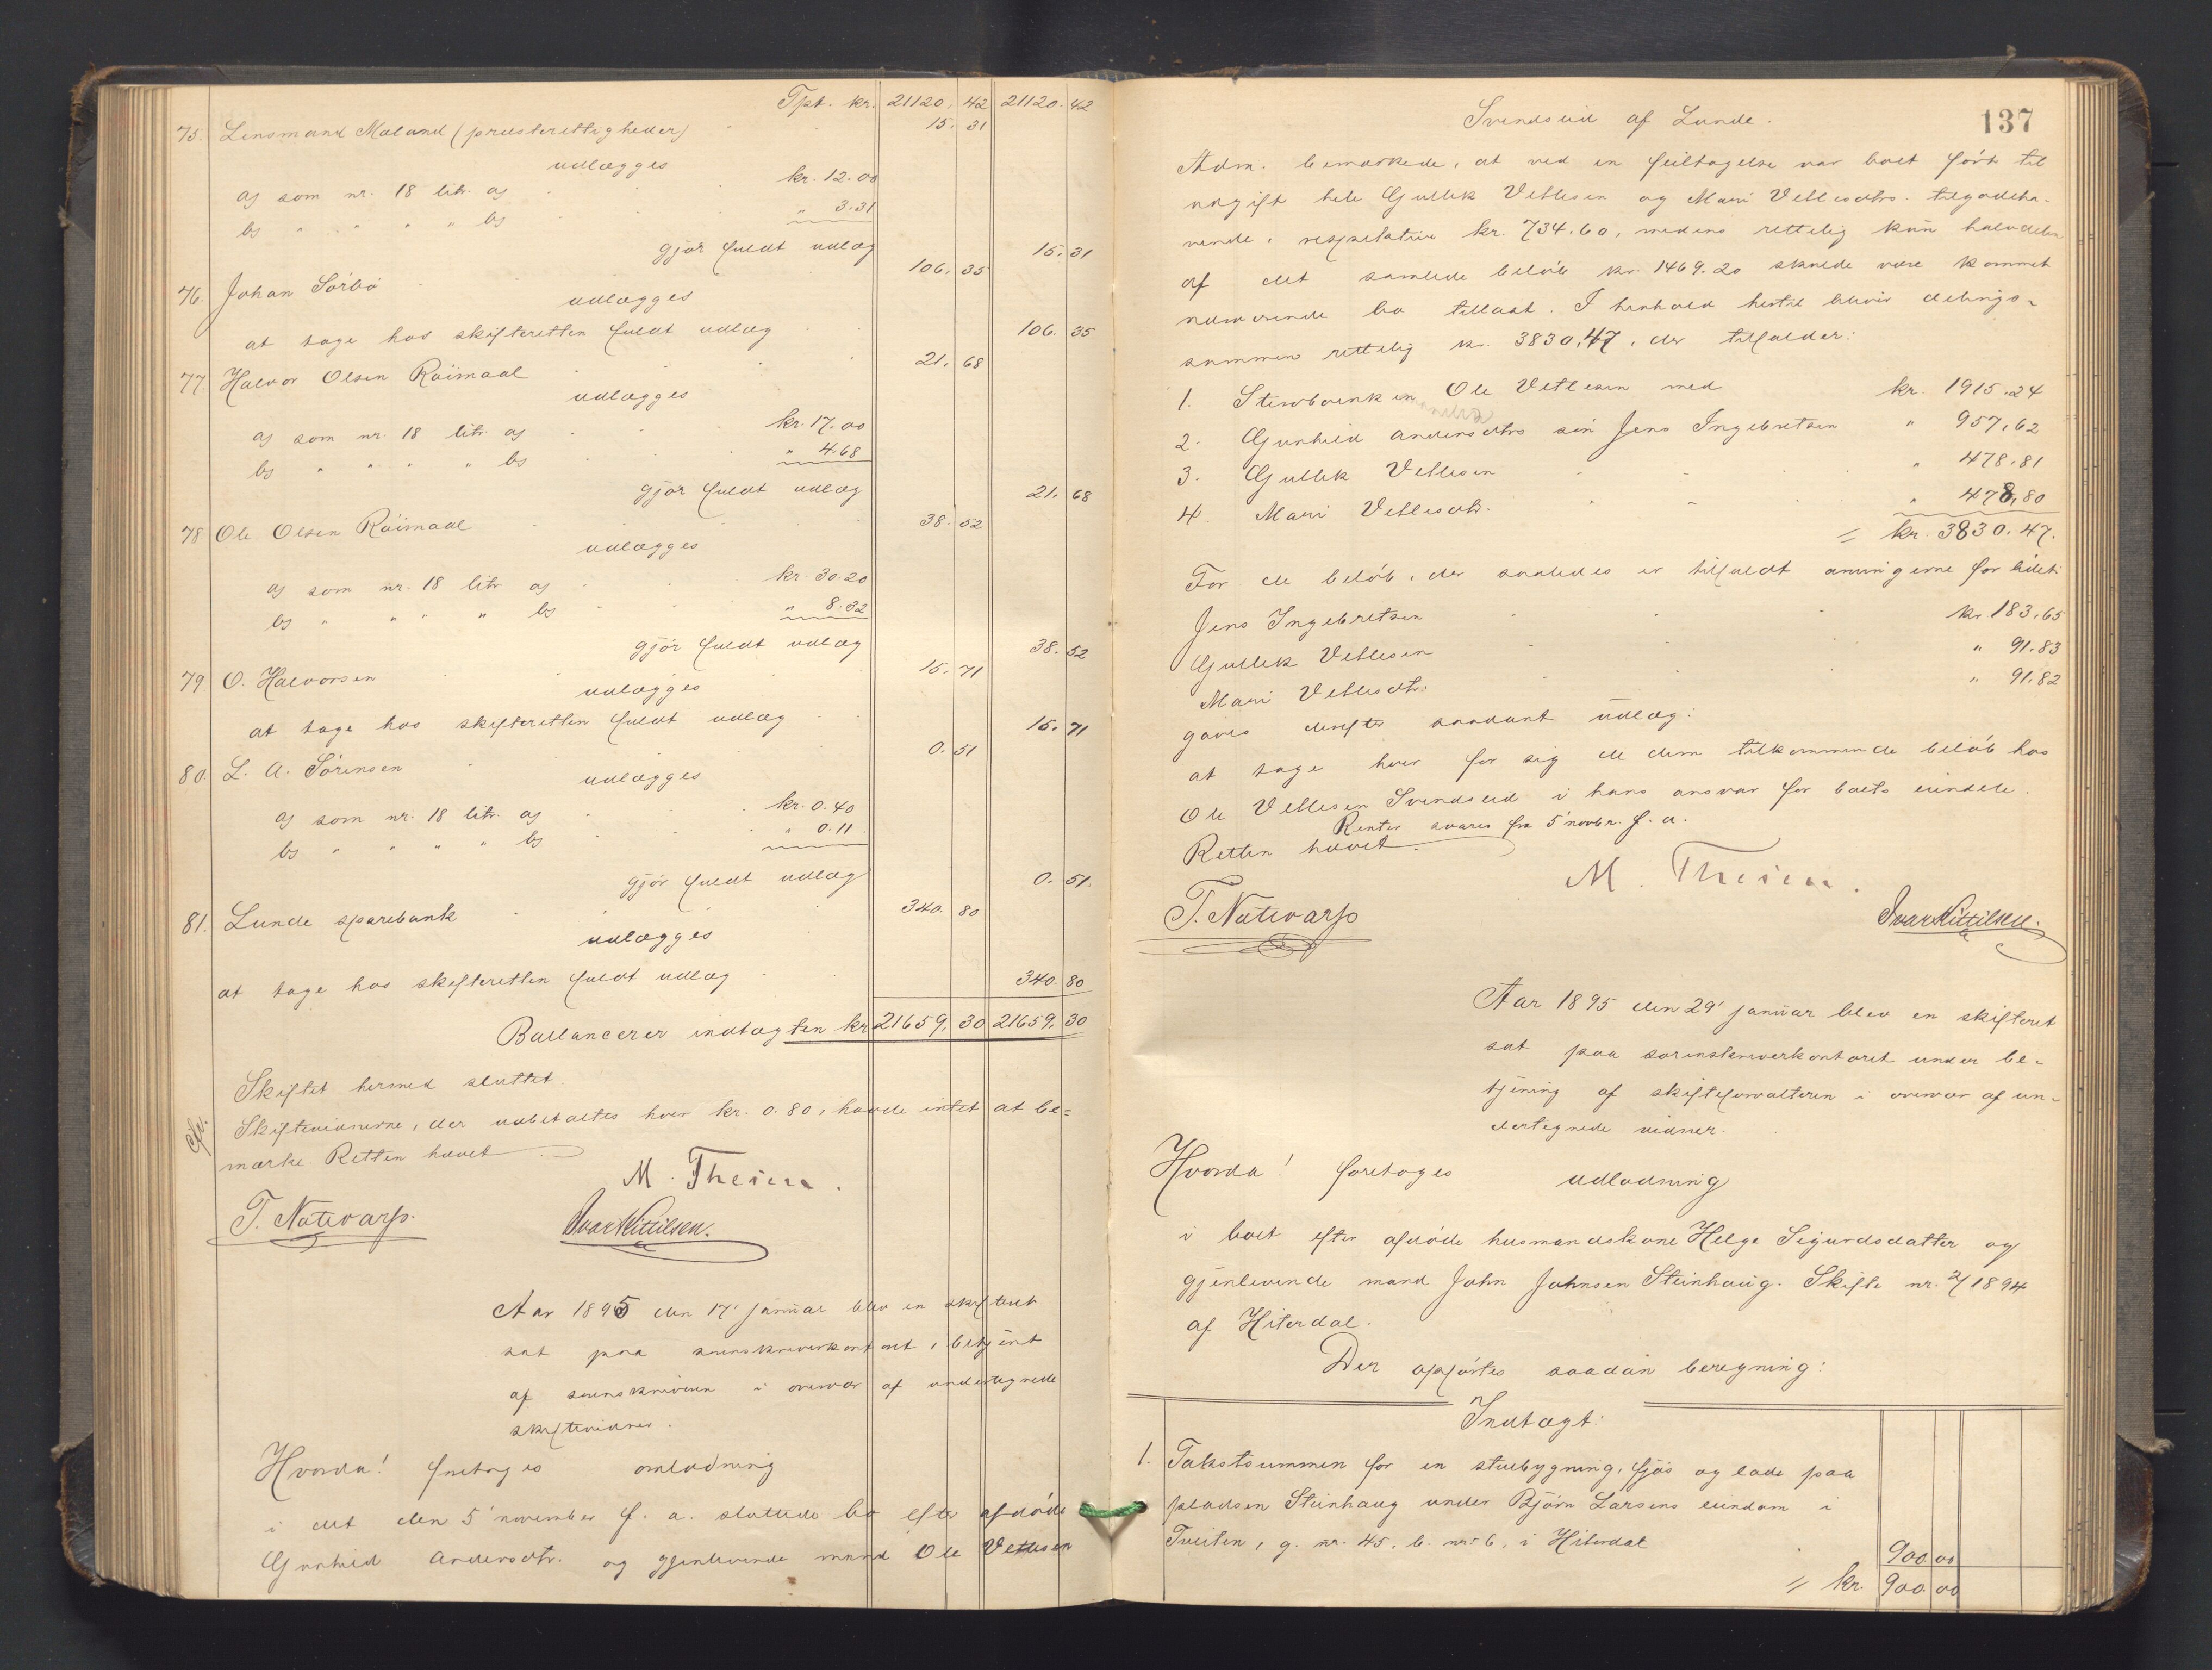 Tpt. kr. 21120. 42 21120. 42
75. Lensmand Maland (presterettigheder) 15. 31
udlægges
a) som nr. 18 litr. a) kr. 12.00
b) " " " " b) " 3.31
gjør fuldt udlæg 15. 31
76. Johan Sørbø 106. 35
udlægges
at tage hos skifteretten fuldt udlæg 106. 35
77. Halvor Olsen Røimaal 21. 68
udlægges
a) som nr. 18 litr. a) kr. 17.00
b) " " " " b) " 4.68
gjør fuldt udlæg 21. 68
78 Ole Olsen Røimaal 38. 52
udlægges
a) som nr. 18 litr. a) kr. 30.20
b) " " " " b) " 8.32
gjør fuldt udlæg 38. 52
79 O. Halvorsen 15. 71
udlægges
at tage hos skifteretten fuldt udlæg 15. 71
80. L. A. Sørensen 0. 51
udlægges
a) som nr. 18 litr. a) kr. 0.40
b) " " " " b) " 0.11
gjør fuldt udlæg 0. 51.
81. Lunde sparebank 340. 80
udlægges
at tage hos skifteretten fuldt udlæg 340. 80
Ballancerer indtægten kr 21659. 30 21659. 30
Skiftet hermed sluttet.
Skiftevidnerne, der udbetaltes hver kr. 0.80, havde intet at be=
mærke. Retten hævet
M. Theisen.
T. Natevarp. Ivar Kittilsen.
Aar 1895 den 17' januar blev en skifteret
sat paa sorenskriverkontoret, betjent
af sorenskriveren i overvær af undertegnede
skiftevidner.
Hvorda! foretoges omlodning
i det den 5' november f. a. sluttede bo efter afdøde
Gunhild Andersdtr. og gjenlevende mand Ole Vetlesen
137
Svendseid af Lunde.
Adm. bemærkede, at ved en feiltagelse var boet ført til
udgift hele Gullik Vetlesen og Mari Vetlesdtrs. tilgodeha-
vende, respektive kr. 734.60, medens rettelig kun halvdelen
af det samlede beløb kr. 1469.20 skulde være kommet
nærværende bo tillast. I henhold hertil bliver delings-
summen rettelig kr. 3830.47, der tilfalder:
1. Stervboenkemanden Ole Vetlesen med kr. 1915.24
2. Gunhild Andersdtrs søn Jens Ingebretsen " 957.62
3. Gullik Vetlesen " 478.81
4. Mari Vetlesdtr. " 478.80
= kr. 3830.47.
For de beløb, der saaledes er tilfaldt arvingerne for lidet:
Jens Ingebretsen kr. 183.65
Gullik Vetlesen " 91.83
Mari Vetlesdtr. " 91.82
gaves derefter saadant udlæg:
at tage hver for sig de dem tilkommende beløb hos
Ole Vetlesen Svendseid i hans ansvar for boets eiendele.
Renter svares fra 5' novbr. f. a.
Retten hævet.
M. Theisen.
T. Natevarp Ivar Kittilsen.
Aar 1895 den 29' januar blev en skifteret
sat paa sorenskriverkontoret under be-
tjening af skifteforvalteren i overvær af un-
dertegnede vidner.
Hvorda! foretoges udlodning
i boet efter afdøde husmandskone Helge Sigurdsdatter og
gjenlevende mand John Johnsen Steinhaug. Skifte nr. 2/1894
af Hiterdal.
Der opførtes saadan beregning:
Indtægt:
1. Takstsummen for en stuebygning, fjøs og lade paa
pladsen Steinhaug under Bjørn Larsens eiendom i
Tveiten, g. nr. 45, b. nr. 6, i Hiterdal 900 00
= kr. 900.00